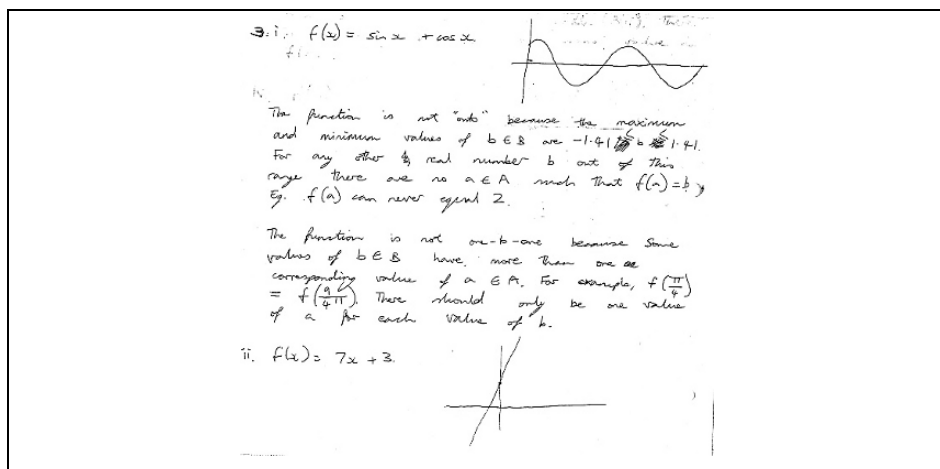 3. i. f(x) = sin x + cos x
The function is not "onto" because the maximum
and minimum values of b ∈ B are -1.41 ≤ b ≤ 1.41.
For any other real number b out of this
range there are no a ∈ A such that f(a) = b
Eg. f(a) can never equal 2.
The function is not one-to-one because some
values of b ∈ B have more than one
corresponding value of a ∈ A. For example, f(π/4)
= f(9/4 π). There should only be one value
of a for each value of b.
ii. f(x) = 7x + 3